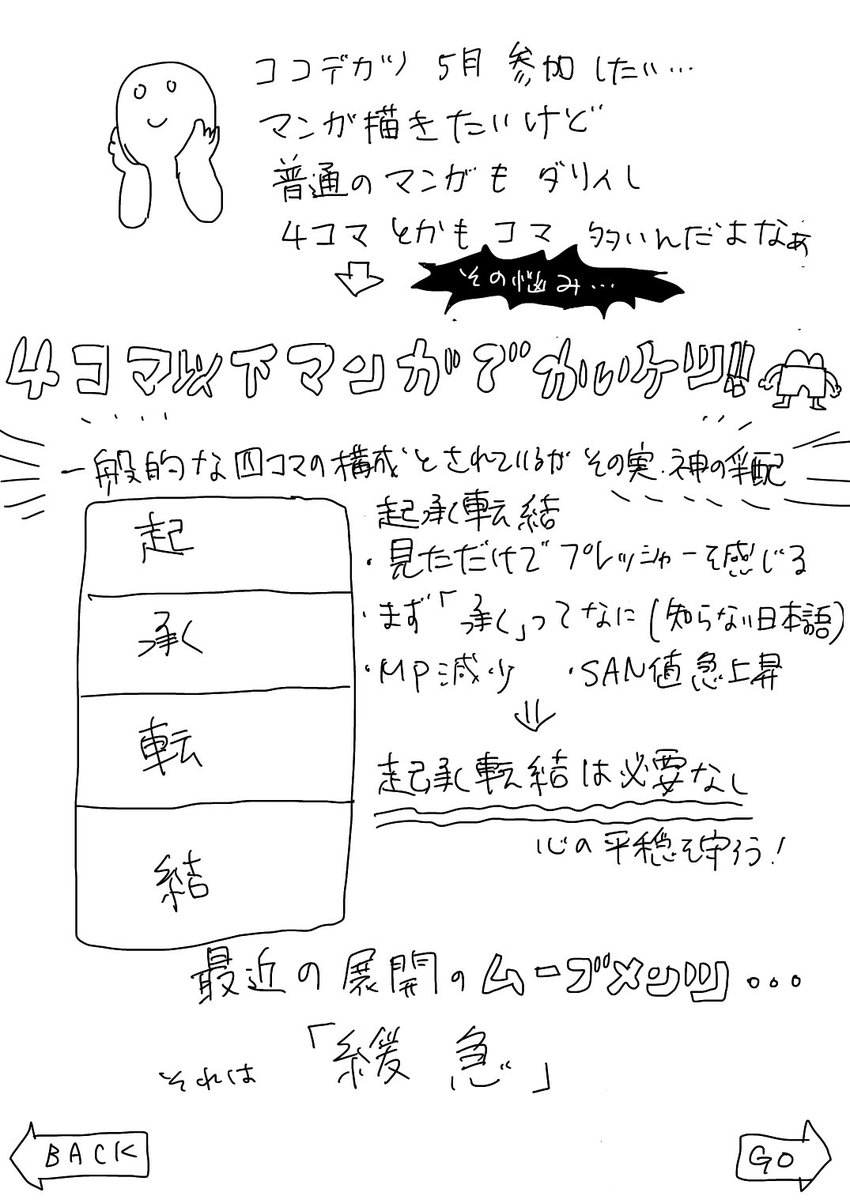 ココデガツ 5月 参加したい…
マンガ描きたいけど
普通のマンガも ダリィし
4コマとかも コマ 多いんだよなぁ
その悩み…
4コマ以下マンガでかいケツ!!
一般的な四コマの構成とされているが その実 神の采配
起
承
転
結
起承転結
・見ただけでプレッシャーを感じる
・まず「承」ってなに(知らない日本語)
・MP減少 ・SAN値急上昇
起承転結は必要なし
心の平穏を守ろう!
最近の展開のムーブメンツ…
それは「緩急」
BACK
GO